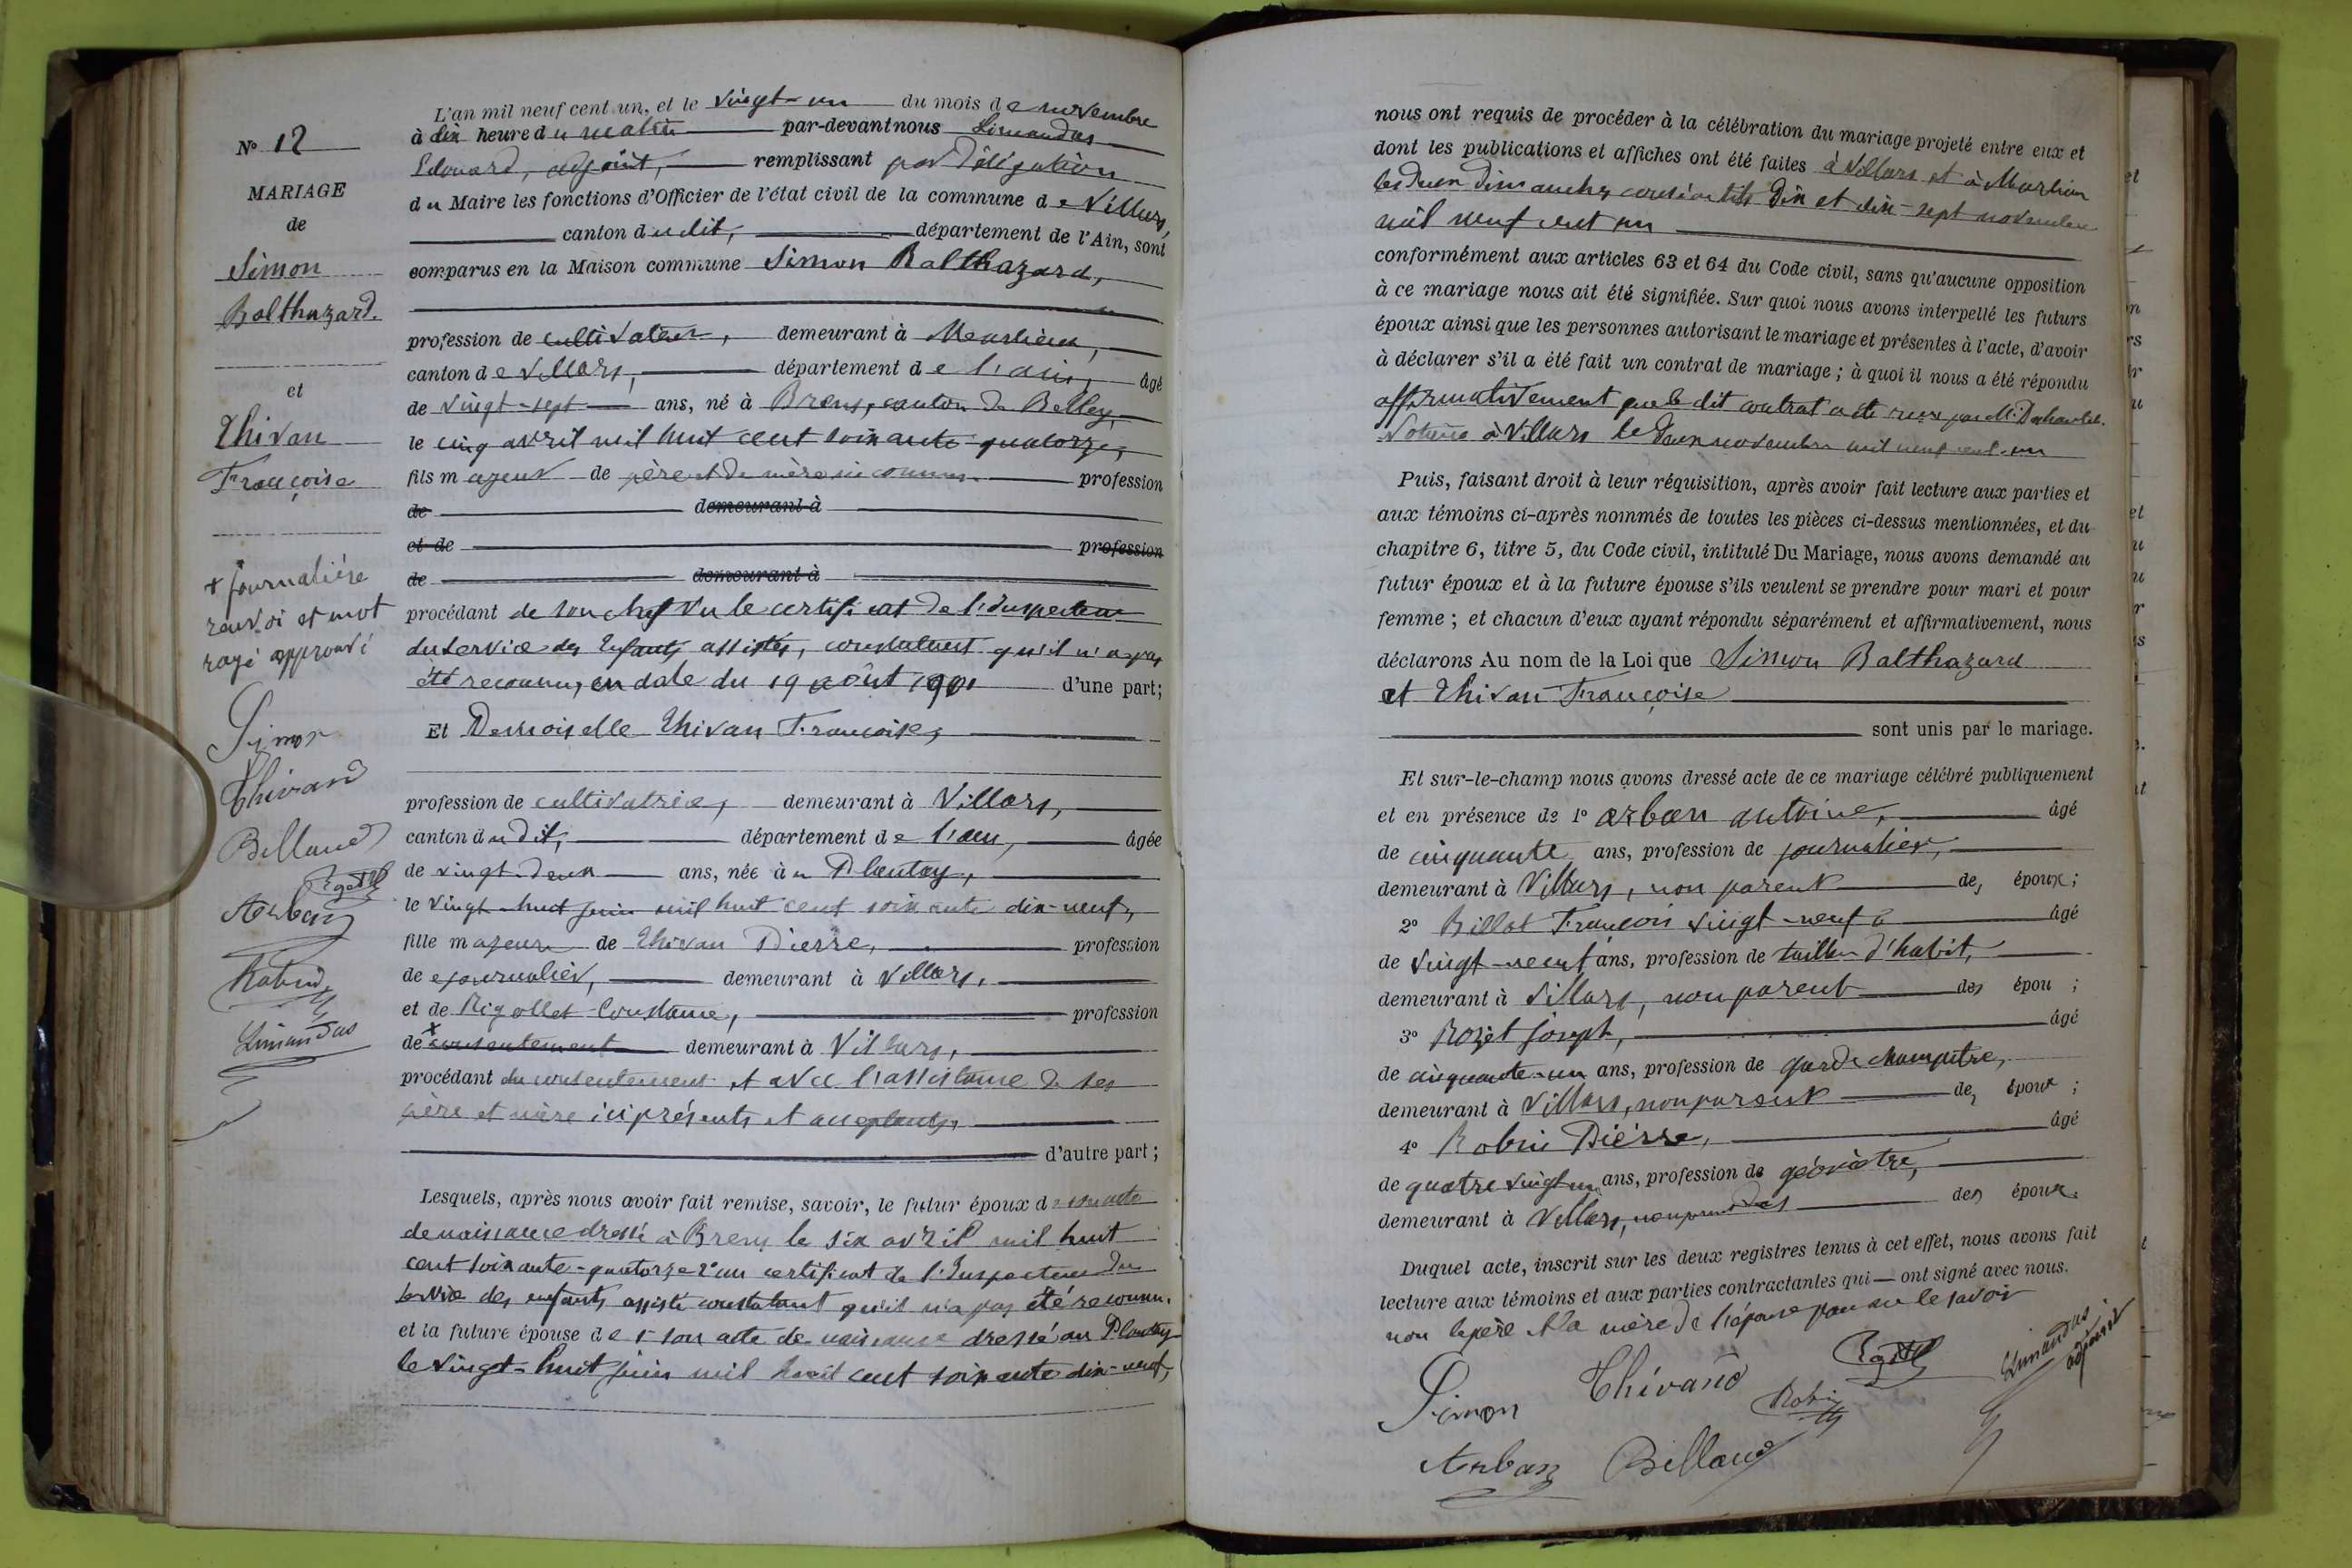 N° 12
MARIAGE
de
Simon
Balthazard.
et
Thivan
Françoise
+ journalière
renvoi et mot
rayé approuvé
Simon
Thivand
Billand
Arban
Robin
Limandas
L'an mil neuf cent un, et le vingt-un du mois de novembre
à dix heure du matin par-devant nous Limandas
Edouard, adjoint, remplissant par Délégation
du Maire les fonctions d'Officier de l'état civil de la commune de Villars,
canton du dit, département de l'Ain, sont
comparus en la Maison commune Simon Balthazard,
profession de cultivateur, demeurant à Marlieux,
canton de Villars, département de l'ain, âgé
de vingt-sept ans, né à Brens, canton de Belley,
le cinq avril mil huit cent soixante-quatorze,
fils majeur de père et de mère inconnus profession
de demeurant à
et de profession
de demeurant à
procédant de son chef vu le certificat de l'Inspecteur
du service des Enfants assistés, constatant qu'il n'a pas
été reconnu, en date du 19 août 1901 d'une part;
Et Demoiselle Thivan Françoise,
profession de cultivatrice, demeurant à Villars,
canton du dit, département de l'ain, âgée
de vingt-deux ans, née à u Plantay,
le vingt-huit juin mil huit cent soixante dix-neuf,
fille majeure de Thivan Pierre, profession
de journalier, demeurant à Villars,
et de Rigollet Constance, profession
de + consentement demeurant à Villars,
procédant du consentement et avec l'assistance de ses
père et mère ici présents et acceptants,
d'autre part;
Lesquels, après nous avoir fait remise, savoir, le futur époux de son acte
de naissance dressé à Brens le six avril mil huit
cent soixante-quatorze 2° un certificat de l'Inspecteur du
service des enfants assistés constatant qu'il n'a pas été reconnu.
et la future épouse de 1° son acte de naissance dressé au Plantay
le vingt-huit juin mil huit cent soixante dix-neuf,
nous ont requis de procéder à la célébration du mariage projeté entre eux et
dont les publications et affiches ont été faites à Villars et à Marlieux
les deux dimanches consécutifs dix et dix-sept novembre
mil neuf cent un
conformément aux articles 63 et 64 du Code civil, sans qu'aucune opposition
à ce mariage nous ait été signifiée. Sur quoi nous avons interpellé les futurs
époux ainsi que les personnes autorisant le mariage et présentes à l'acte, d'avoir
à déclarer s'il a été fait un contrat de mariage; à quoi il nous a été répondu
affirmativement que le dit contrat a été reçu par Me
Notaire à Villars le deux novembre mil neuf cent-un
Puis, faisant droit à leur réquisition, après avoir fait lecture aux parties et
aux témoins ci-après nommés de toutes les pièces ci-dessus mentionnées, et du
chapitre 6, titre 5, du Code civil, intitulé Du Mariage, nous avons demandé au
futur époux et à la future épouse s'ils veulent se prendre pour mari et pour
femme; et chacun d'eux ayant répondu séparément et affirmativement, nous
déclarons Au nom de la Loi que Simon Balthazard
et Thivan Françoise
sont unis par le mariage.
Et sur-le-champ nous avons dressé acte de ce mariage célébré publiquement
et en présence de 1° Arban antoine, âgé
de cinquante ans, profession de journalier,
demeurant à Villars, non parent des époux;
2° Billot François vingt-neuf a âgé
de vingt-neuf ans, profession de tailleur d'habit,
demeurant à Villars, non parent des épou ;
3° Rozet Joseph, âgé
de cinquante-un ans, profession de garde champêtre,
demeurant à Villars, non parent des époux ;
4° Robin Pierre, âgé
de quatre vingt un ans, profession de géomètre,
demeurant à Villars, des époux.
Duquel acte, inscrit sur les deux registres tenus à cet effet, nous avons fait
lecture aux témoins et aux parties contractantes qui — ont signé avec nous.
non le père et la mère de l'épouse pour ne le savoir
Simon Thivand Robin Limandas adjoint
Arban Billand